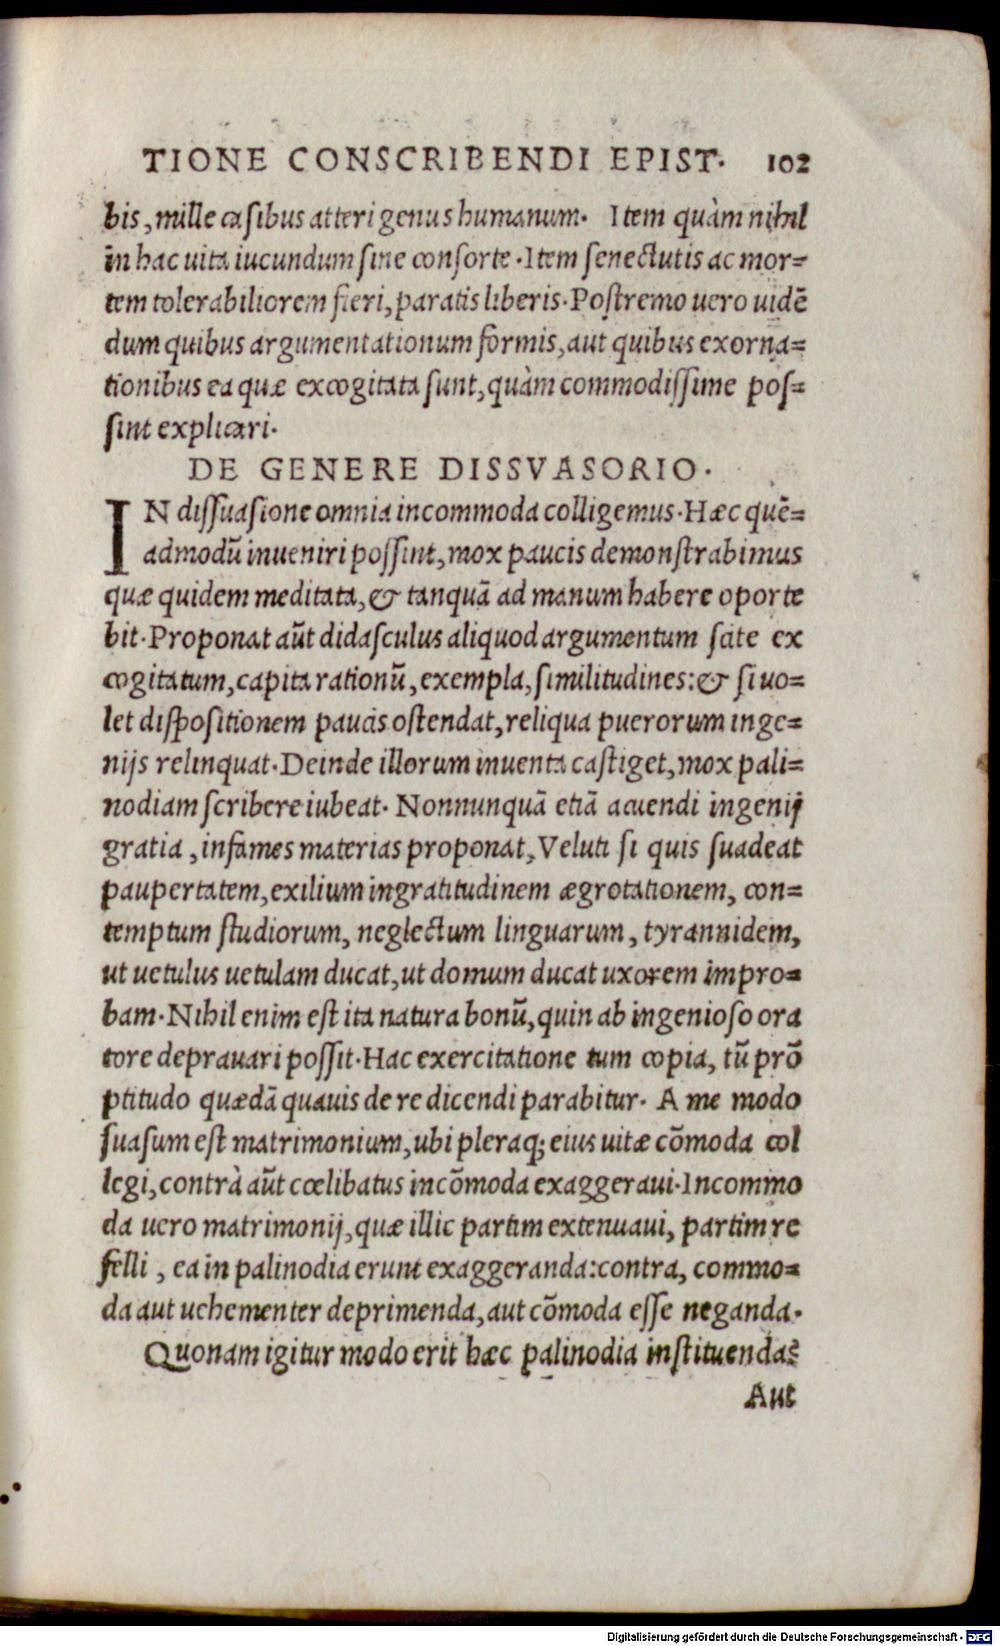 TIONE CONSCRIBENDI EPIST. 102
bis, mille casibus atteri genus humanum. Item quàm nihil
in hac uita iucundum sine consorte. Item senectutis ac mor=
tem tolerabiliorem fieri, paratis liberis. Postremo uero uidē
dum quibus argumentationum formis, aut quibus exorna=
tionibus ea quæ excogitata sunt, quàm commodissime pos=
sint explicari.
DE GENERE DISSVASORIO.
IN dissuasione omnia incommoda colligemus. Hæc quē=
admodū inueniri possint, mox paucis demonstrabimus
quæ quidem meditata, & tanquā ad manum habere oporte
bit. Proponat aūt didasculus aliquod argumentum scite ex
cogitatum, capita rationū, exempla, similitudines: & si uo=
let dispositionem paucis ostendat, reliqua puerorum inge=
nijs relinquat. Deinde illorum inuenta castiget, mox pali=
nodiam scribere iubeat. Nonnunquā etiā acuendi ingenij
gratia, infames materias proponat, Veluti si quis suadeat
paupertatem, exilium ingratitudinem ægrotationem, con=
temptum studiorum, neglectum linguarum, tyrannidem,
ut uetulus uetulam ducat, ut domum ducat uxorem impro=
bam. Nihil enim est ita natura bonū, quin ab ingenioso ora
tore deprauari possit. Hac exercitatione tum copia, tū prō
ptitudo quædā quauis de re dicendi parabitur. A me modo
suasum est matrimonium, ubi pleraq; eius uitæ cōmoda col
legi, contrà aūt cœlibatus incōmoda exaggeraui. Incommo
da uero matrimonij, quæ illic partim extenuaui, partim re
felli, ea in palinodia erunt exaggeranda: contra, commo=
da aut uehementer deprimenda, aut cōmoda esse neganda.
Quonam igitur modo erit hæc palinodia instituenda?
Aut
Digitalisierung gefördert durch die Deutsche Forschungsgemeinschaft - DFG